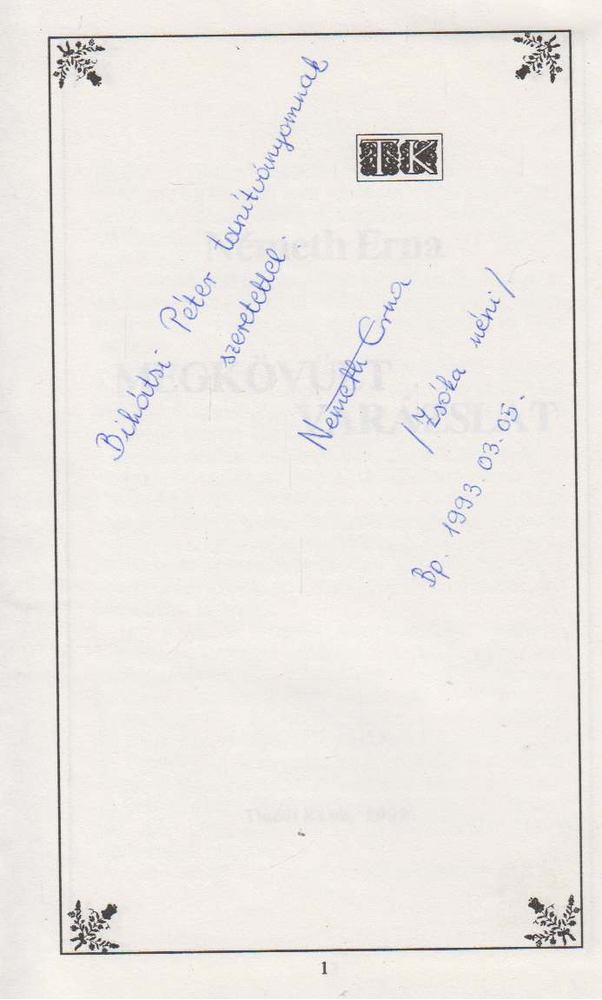 TK
Bihátsi Péter tanítványomnak
szeretettel.
Németh Erna
/Zsóka néni/
Bp. 1993. 03. 05.
Németh Erna
MEGKÖVÜLT
VARÁZSLAT
1